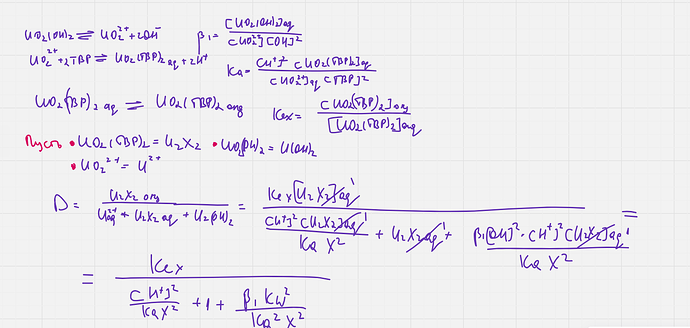 UO₂(OH)₂ ⇌ UO₂²⁺ + 2OH⁻
β₁ = [UO₂(OH)₂]aq / [UO₂²⁺][OH]²
UO₂²⁺ + 2TBP ⇌ UO₂(TBP)₂ aq + 2H⁺
Ka = [H⁺]² [UO₂(TBP)₂]aq / [UO₂²⁺]aq [TBP]²
UO₂(TBP)₂ aq ⇌ UO₂(TBP)₂ org
Kex = [UO₂(TBP)₂]org / [UO₂(TBP)₂]aq
Пусть • UO₂(TBP)₂ = U₂X₂ • UO₂(OH)₂ = U(OH)₂
• UO₂²⁺ = U²⁺
D = U₂X₂ org / (U²⁺aq + U₂X₂ aq + U₂(OH)₂) = Kex [U₂X₂]aq¹ / ([H⁺]² [U₂X₂]aq¹ / Ka X² + U₂X₂aq¹ + β₁[OH]² · [H⁺]² [U₂X₂]aq¹ / Ka X²) =
= Kex / ([H⁺]² / Ka X² + 1 + β₁ Kw² / Ka² X²)